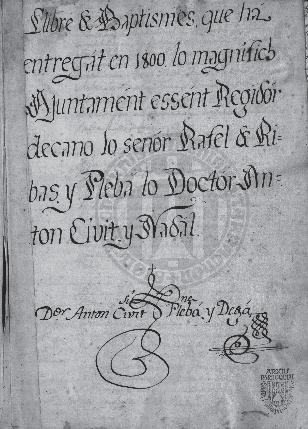 Llibre de Baptismes, que ha
entregat en 1800 lo magnifich
Ajuntament essent Regidor
decano lo señor Rafel de Ri-
bas, y Plebá lo Doctor An-
ton Civit, y Nadal.
Dor Anton Civit Plebá, y Degá
ARXIU
PARROQUIAL